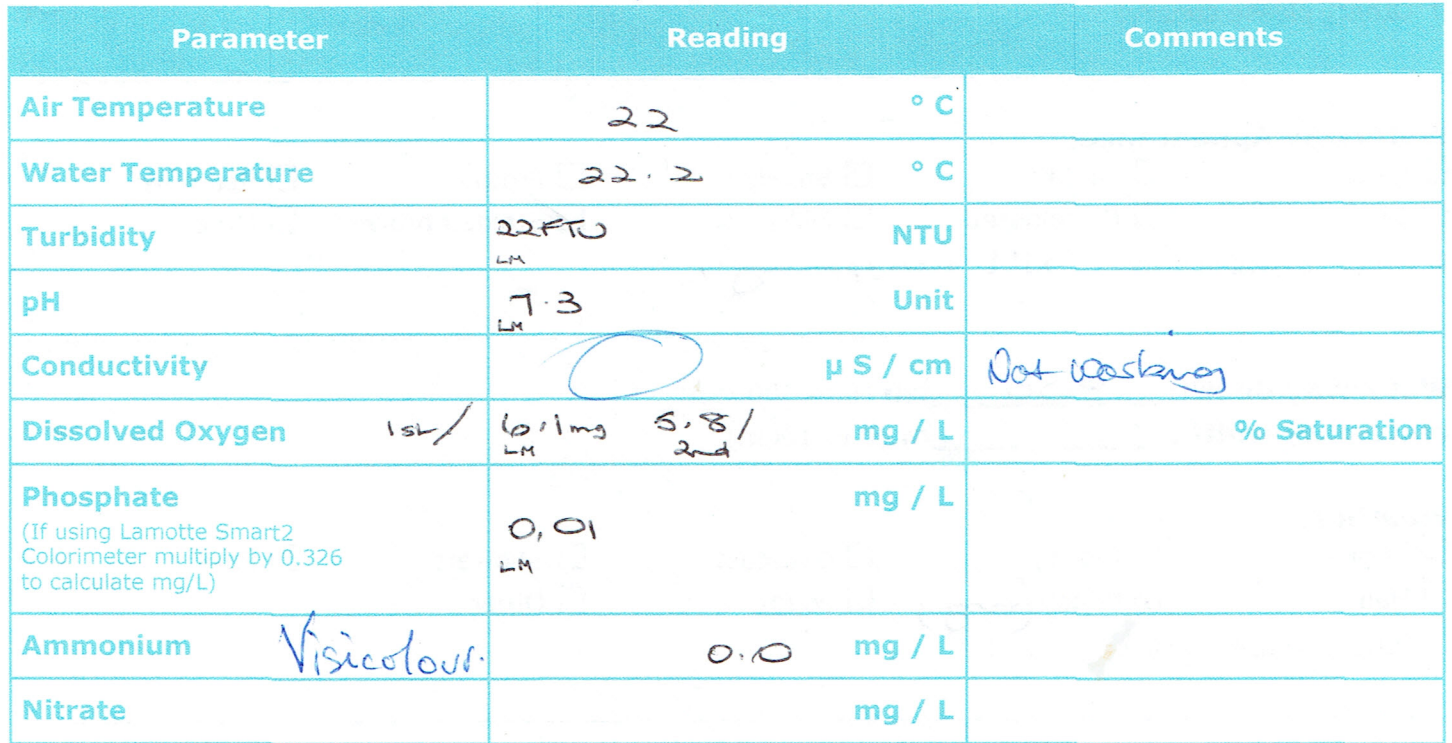 Parameter Reading Comments
Air Temperature 22 ° C
Water Temperature 22.2 ° C
Turbidity 22FTU NTU
LM
pH 7.3 Unit
LM
Conductivity µ S / cm Not working
Dissolved Oxygen 1st/ 6.1mg 5.8/ mg / L % Saturation
LM 2nd
Phosphate mg / L
(If using Lamotte Smart2
Colorimeter multiply by 0.326
to calculate mg/L)
0,01
LM
Ammonium Visicolour. 0.0 mg / L
Nitrate mg / L